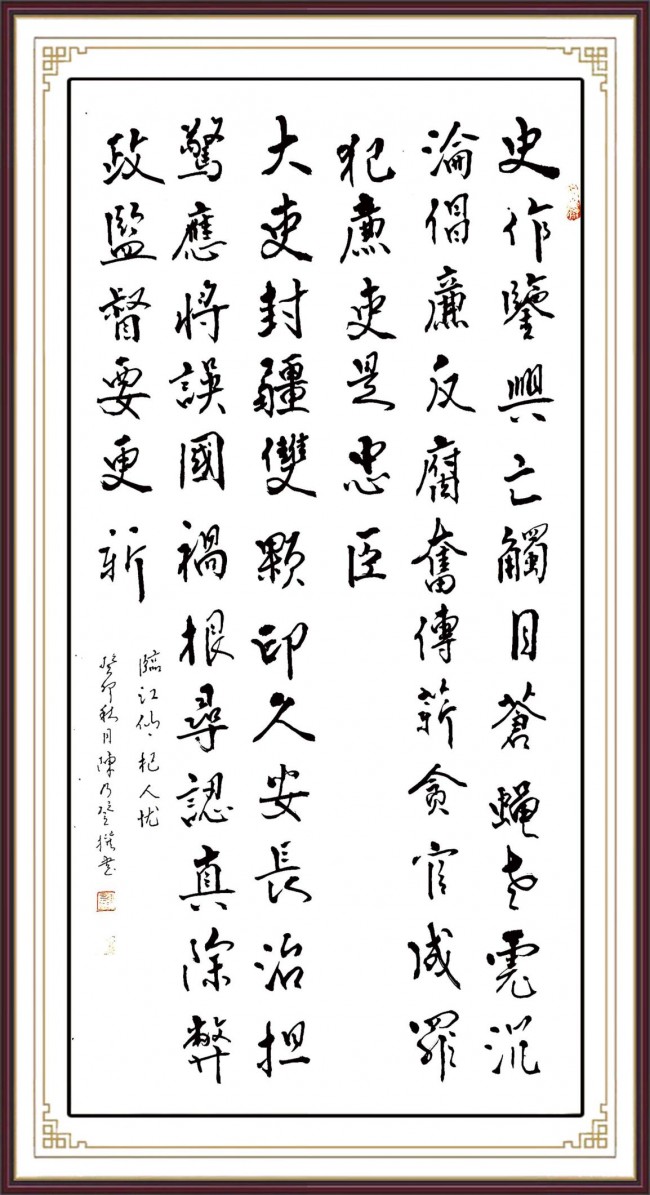 史作鑒興亡觸目蒼蠅老虎沉
淪倡廉反腐奮傳薪貪官成罪
犯廉吏是忠臣
大吏封疆雙顆印久安長治担
驚應將誤國禍根尋認真除弊
政監督要更新
臨江仙·杞人忧
癸卯秋月陳乃登撰書